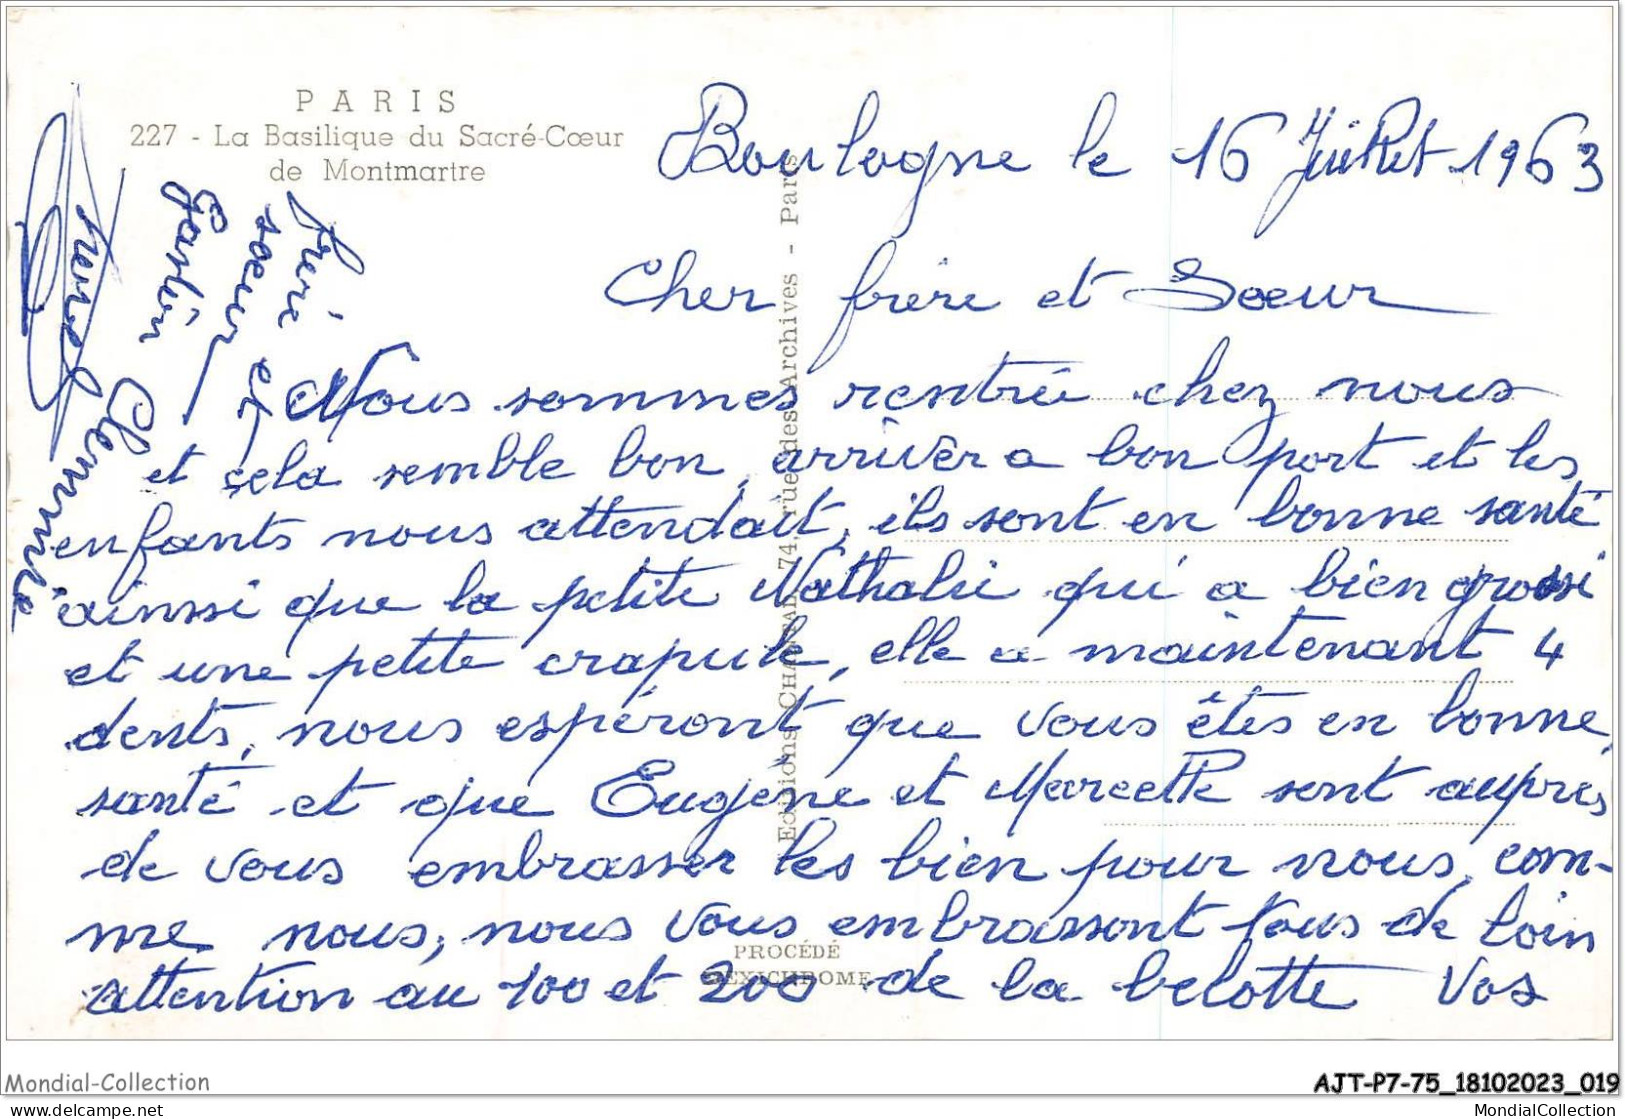 PARIS
227 - La Basilique du Sacré-Cœur
de Montmartre
Boulogne le 16 Juillet 1963
Cher frère et Soeur
Nous sommes rentrée chez nous
et cela semble bon, arrivèr a bon port et les
enfants nous attendait, ils sont en bonne santé
ainssi que la petite Nathalie qui a bien grossi
et une petite crapule, elle a maintenant 4
dents, nous espéront que vous êtes en bonne,
santé et que Eugène et Marcelle sont auprès
de vous embrasser les bien pour nous, com-
me nous, nous vous embrassont tous de loin
attention au 100 et 200 de la belotte Vos
frère
soeur et
et
Clemmie
Editions CHANTAL, 74, rue des Archives - Paris
PROCÉDÉ
MEXICHROME
Mondial-Collection
AJT-P7-75_18102023_019
delcampe.net
MondialCollection